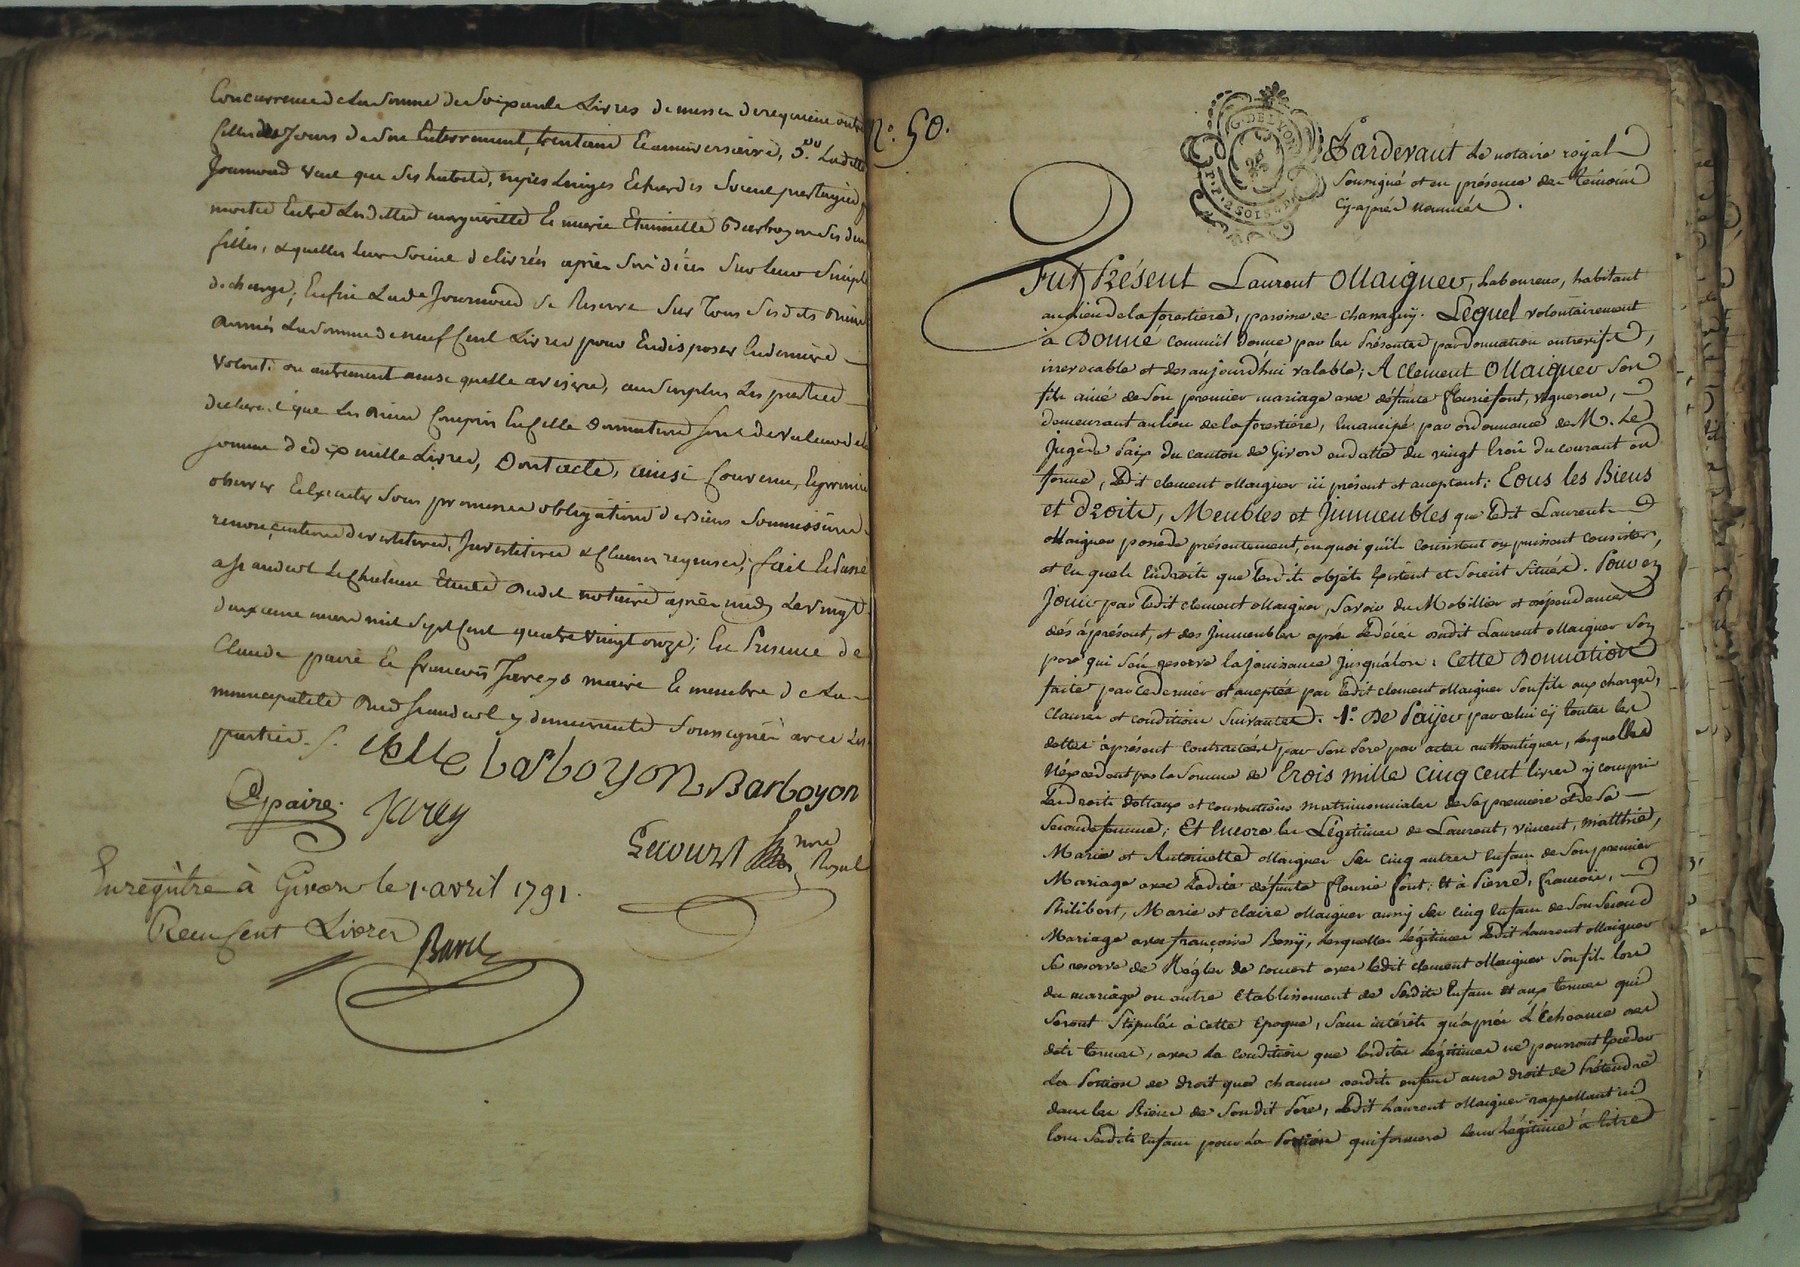 Concurrence de la somme de soixante Livres de messes de requiem outre
celles des Jours de son Enterrement, trentaine Et anniversaire, 5.° Ladite
Journoud veut que ses habits, nipes Linges Et hardes soient partagés p
moitié Entre Lesdittes margueritte Et marie Etiennette Barboyon ses deux
filles, auquelles Leur soient delivrés après son décès sur leur simple
decharge; Enfin Lade Journoud se Reserve sur Tous sesdits Biens
donnés La somme de neuf Cent Livres pour En disposer En derniere
volonté ou autrement ainsi quelle avisera, au surplus Les parties
declarent que Les Biens Compris En Cette Donnation sont de valeur de la
somme de dix mille Livres, Dont acte, ainsi Convenu, Et promis
observer Et Executer sous promesses obligations de Biens soummissions
renonçiations devestitures, Investitures & Clauses requises; fait Et Passé
a st andeol Le Chateau Etude Dudit notaire après midy Le vingt
deuxieme mars mil sept Cent quatre vingt onze; En Presence de
Claude paire Et francois Jarey maire Et membre de La
municipalité Dud st andeol y demeurants soussignés avec Les
parties
Barboyon Barboyon
paire. Jarey
Lecourt nore Royal
Enregistré à Givors le 1. avril 1791.
Reçu Cent Livres
N.° 50.
G. DE LYON
Pardevant Le notaire royal
soussigné et en présence des témoins
cy-après nommés.
Fut Présent Laurent Maiguer, Laboureur, habitant
au lieu de la forestiere, paroisse de Chassagny. Lequel volontairement
à Donné comme il Donne par les Présentes par donnation entrevifs,
irrevocable et des aujourd'hui valable; A Clement Maiguer son
fils ainé de son premier mariage avec défunte fleurie font, vigneron,
demeurant au lieu de la forestière, Emancipé par ordonnance de M. Le
Juge de Paix du canton de Givors en datte du vingt trois du courant en
forme, Ledit clement Maiguer ici présent et acceptant: Tous les Biens
et Droits, Meubles et Immeubles que ledit Laurent
Maiguer possede présentement, en quoi qu'ils consistent ou puissent consister,
et en quels Endroits que lesdits objets Existent et soient situés. Pour en
Jouir par ledit clement Maiguer, savoir du Mobilier et dépendances
dès àprésent, et des Immeubles après le décès dudit Laurent Maiguer son
pere qui s'en reserve la jouissance jusqu'alors: Cette Donnation
faite par ce dernier et acceptée par ledit clement Maiguer son fils aux charges,
clauses et conditions suivantes. 1.° De Païjer par celui cy toutes les
dettes àprésent contractées par son Pere par actes authentiques, lesquelles
n'éxcedent pas la somme de Trois mille cinq cent livres y compris
les droits dottaux et conventions matrimonniales de sa premiere et de sa
seconde femme; Et Encore les Légitimes de Laurent, vincent, matthieu,
Marie et Antoinette Maiguer ses cinq autres Enfans de son premier
Mariage avec ladite défunte fleurie font; et à Pierre, francois,
Philibert, Marie et claire Maiguer aussy ses cinq Enfans de son second
Mariage avec françoise Bessy, lesquelles légitimes ledit Laurent Maiguer
se reserve de Régler de concert avec ledit clement Maiguer son fils lors
du mariage ou autre Etablissement de sesdits Enfans et aux termes qui
seront stipulés à cette Epoque, sans intérêts qu'après L'Echeance des
dits termes, avec la condition que lesdites Légitimes ne pourront Exceder
La Portion de droit que chacun desdits enfans aura droit de Prétendre
dans les Biens de Son dit Pere, Ledit Laurent Maiguer rappellant ici
tous sesdits Enfans pour La Portion qui formera leur Légitime à titre